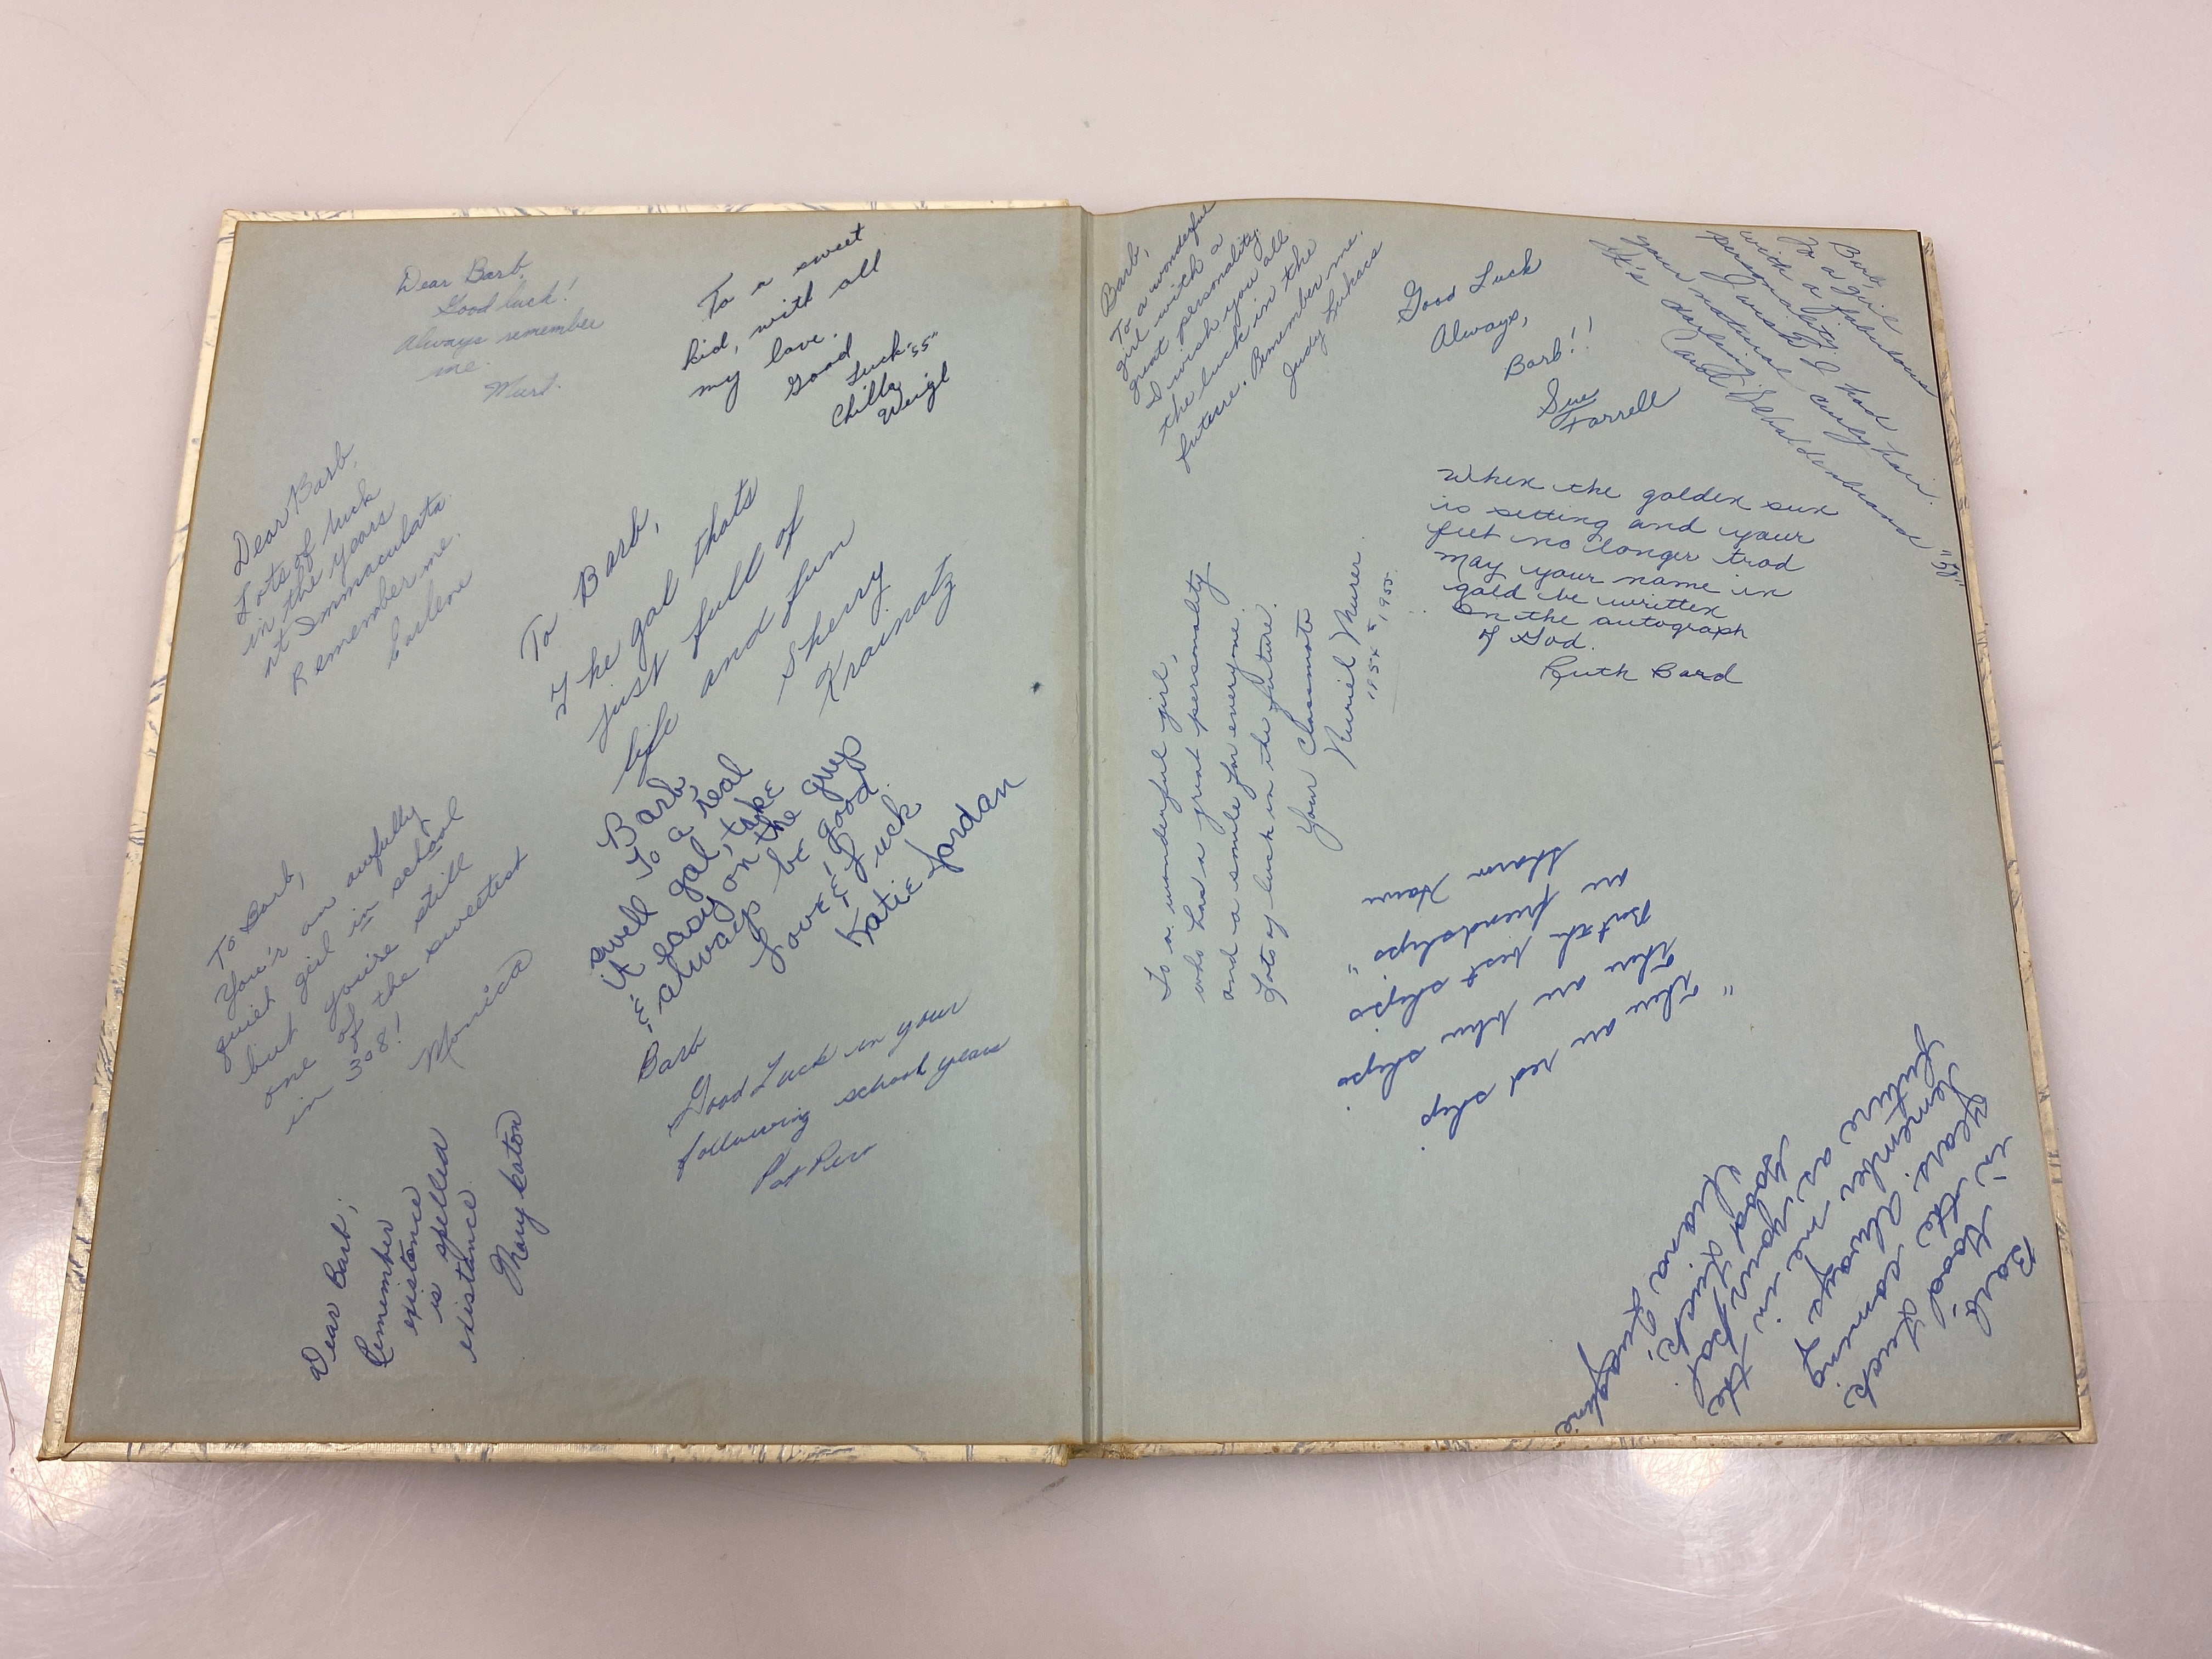 Dear Barb,
Good luck!
Always remember
me.
To a sweet
kid, with all
my love.
Good
Luck "55"
Chilla
Weigl
Dear Barb,
Lots of luck
in the years
at Immaculata.
Remember me.
Darlene
To Barb,
The gal thats
just full of
life and fun
Sherry
Krainatz
Barb,
To a real
swell gal, take
it easy on the guys
& always be good
Love & Luck
Katie Jordan
To Barb,
You'r an awfully
quiet girl in school
but you're still
one of the sweetest
in 308!
Monica
Barb
Good Luck in your
following school years
Pat
Dear Barb,
Remember
existence
is spelled
existance.
Mary Eaton
Barb,
To a wonderful
girl with a
great personality.
I wish you all
the luck in the
future. Remember me.
Judy Lukacs
Good Luck
Always,
Barb!!
Sue
Farrell
Barb,
To a girl
with a fabulous
personality. I had
your natural curly hair.
It's darling.
Carol "58"
When the golden sun
is setting and your
feet no longer trod
May your name in
gold be written
In the autograph
of God.
Ruth Bard
To a wonderful girl,
who has a great personality
and a smile for everyone.
Lots of luck in the future.
Your Classmate
Muriel Murer
1954-1955.
"There are red ships
There are blue ships
There are best ships
But the friendships
are "
Sharon
Barb,
Good Luck
in the coming
years. Always
remember me in the
future as your pal.
Good Luck!